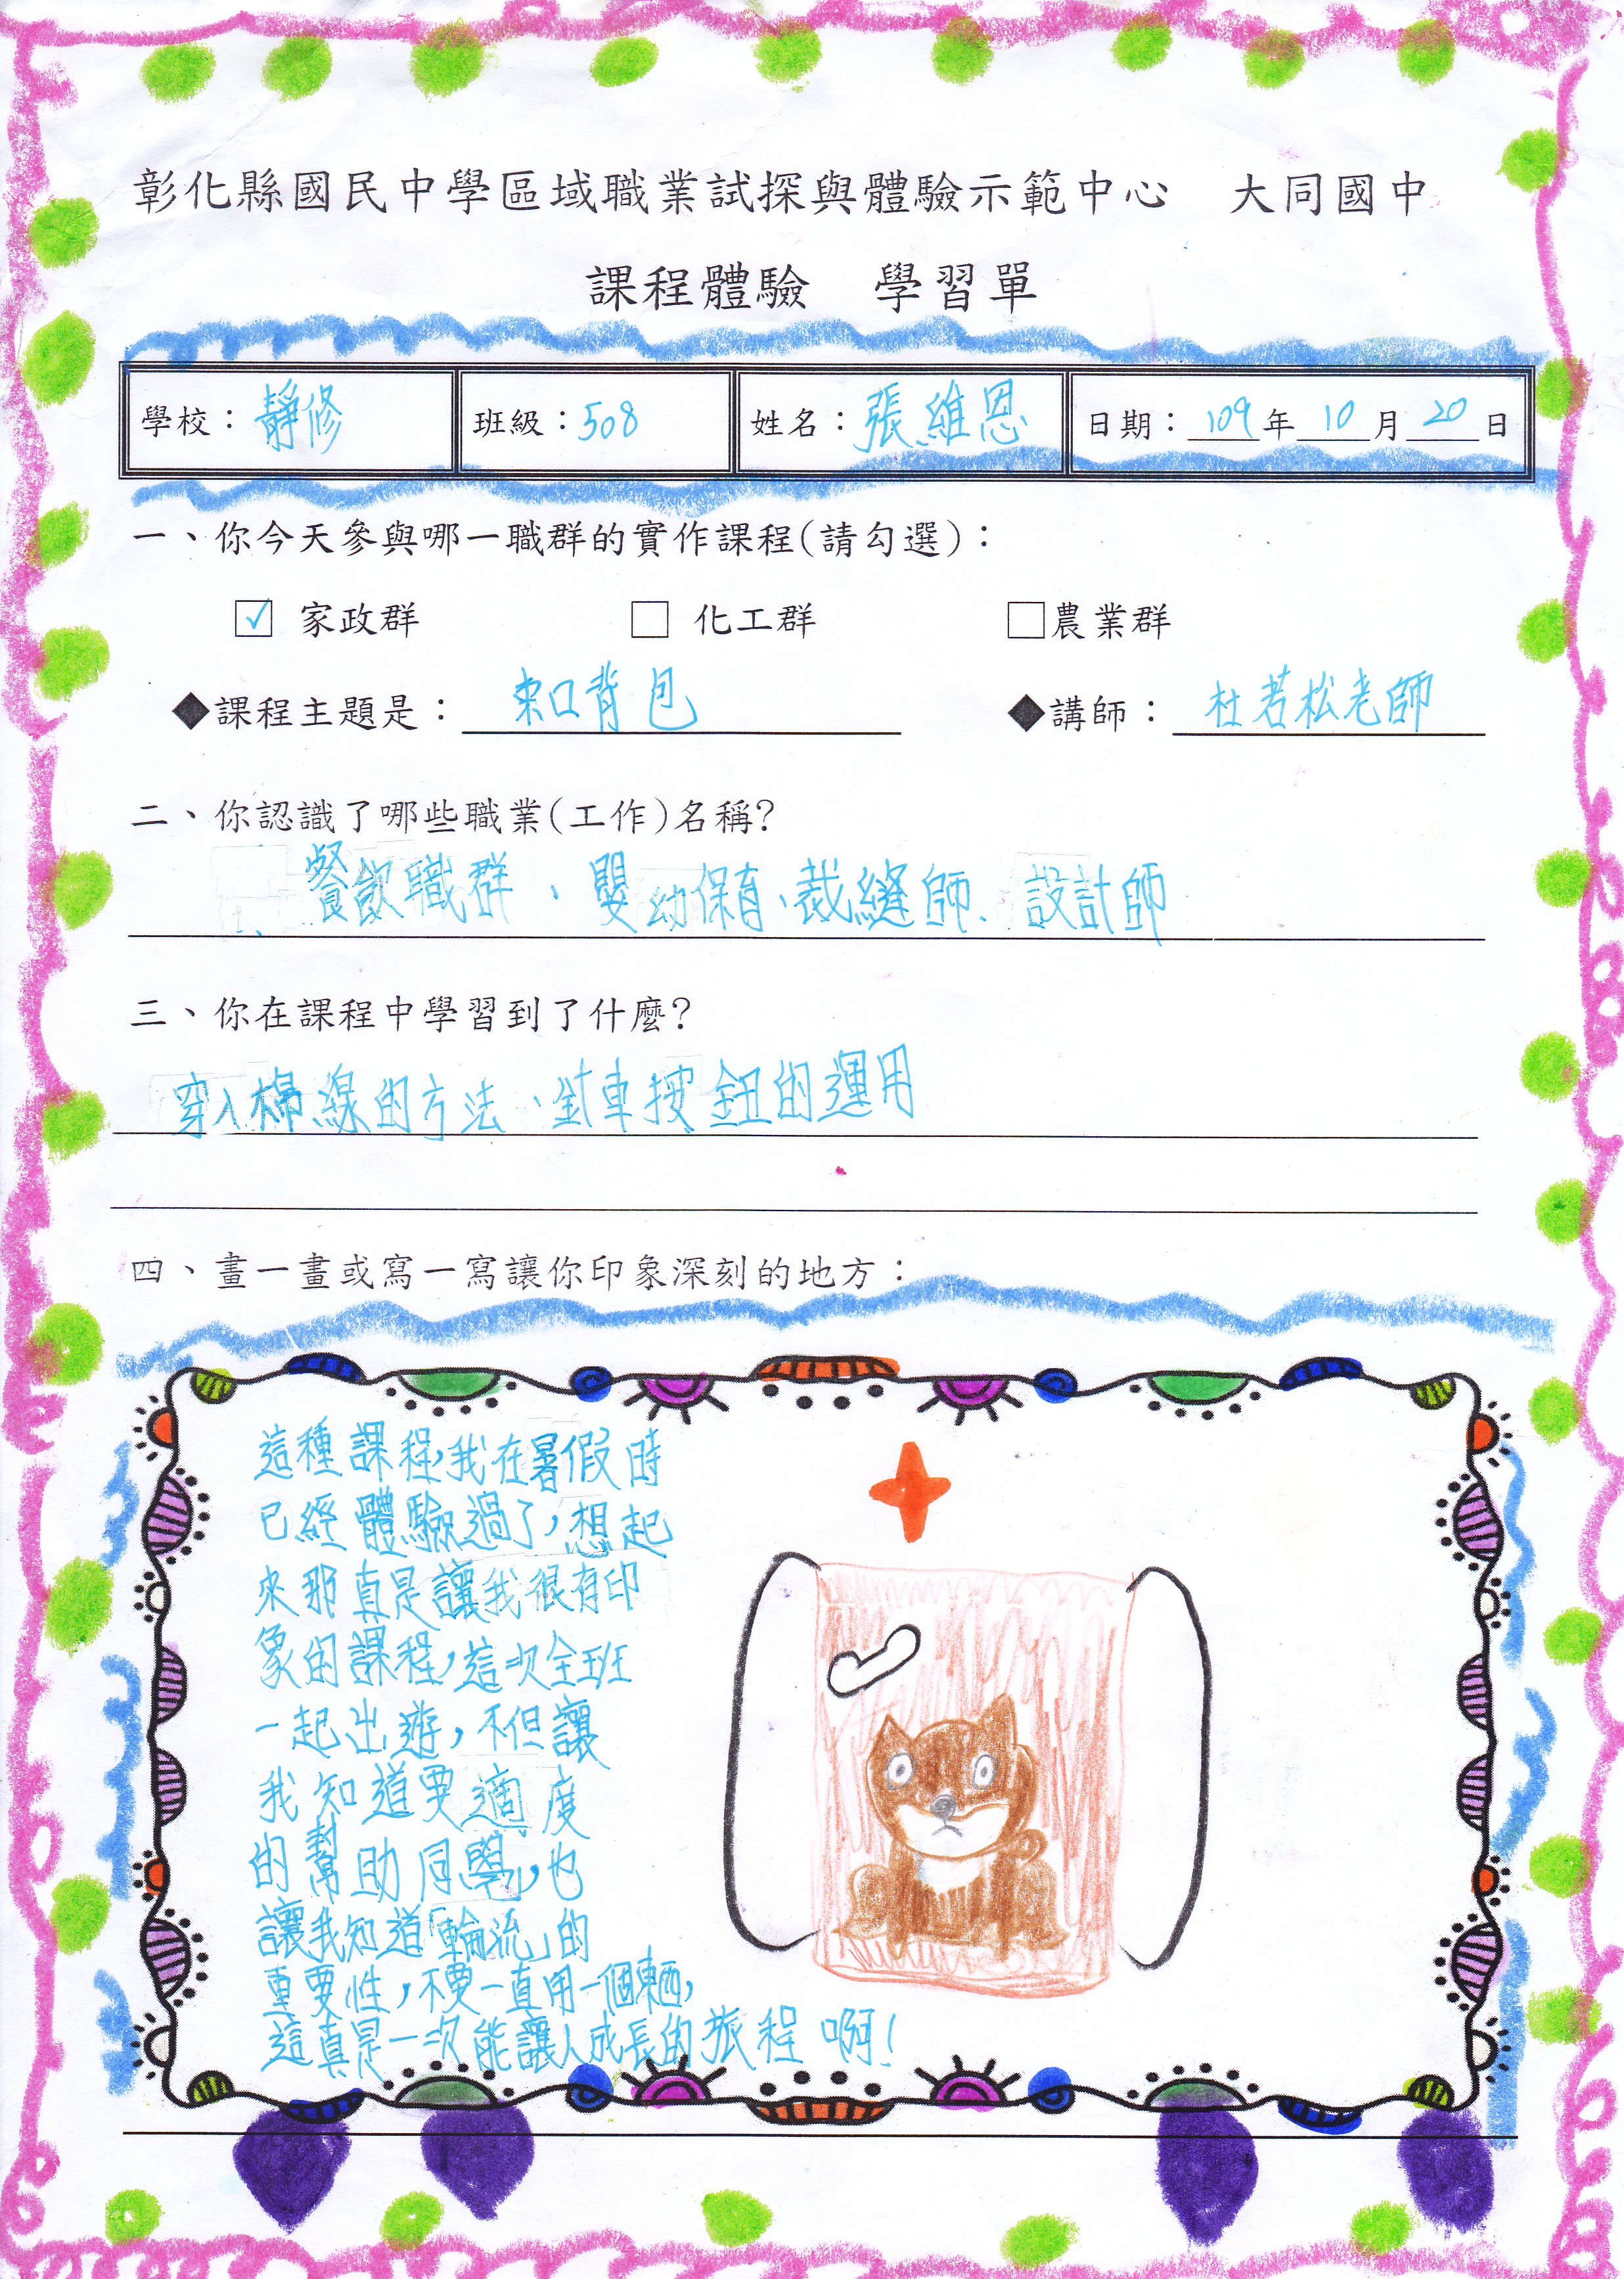 彰化縣國民中學區域職業試探與體驗示範中心　大同國中
課程體驗　學習單
學校：靜修　班級：508　姓名：張維恩　日期：109年10月20日
一、你今天參與哪一職群的實作課程(請勾選)：
☑ 家政群　□ 化工群　□農業群
◆課程主題是：束口背包　◆講師：杜若松老師
二、你認識了哪些職業(工作)名稱?
餐飲職群、嬰幼保育、裁縫師、設計師
三、你在課程中學習到了什麼?
穿入棉線的方法、針車按鈕的運用
四、畫一畫或寫一寫讓你印象深刻的地方：
這種課程，我在暑假時
已經體驗過了，想起
來那真是讓我很有印
象的課程，這次全班
一起出遊，不但讓
我知道要適度
的幫助同學，也
讓我知道「輪流」的
重要性，不要一直用一個東西，
這真是一次能讓人成長的旅程啊！